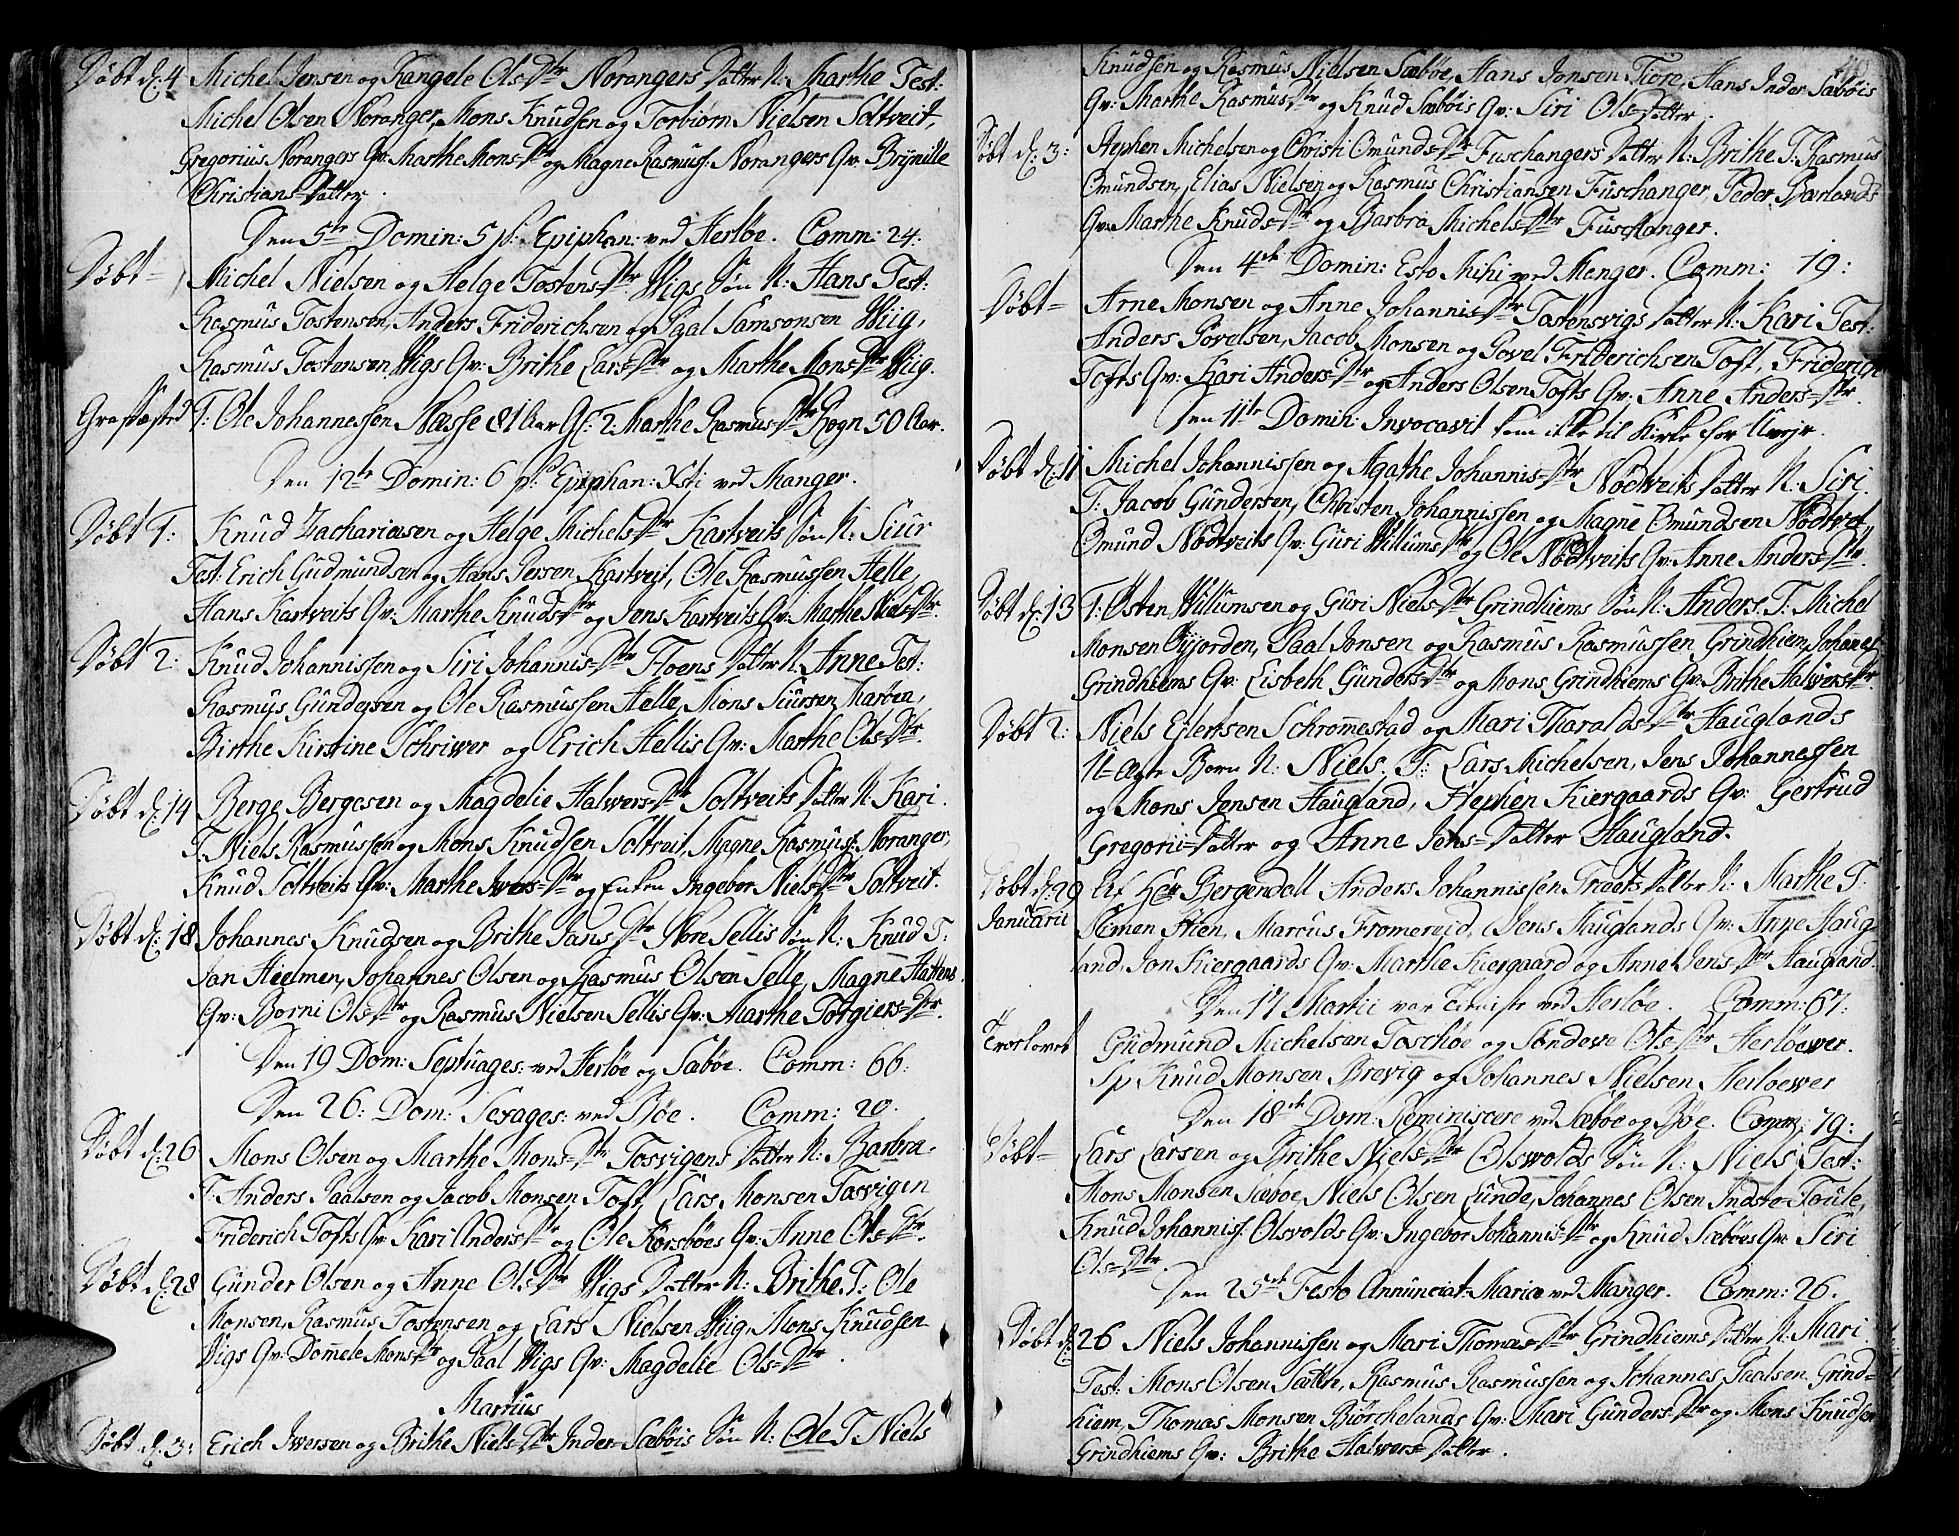 Døbt d: 4 Michel Jensen og Rangele Ols=Dtr Norangers Datter N: Marthe Test:
Michel Olsen Noranger, Mons Knudsen og Torbiørn Nielsen Soltveit,
Gregorius Norangers Qv: Marthe Mons=Dtr og Magne Rasmuss: Norangers Qv: Brynille
Christians=Datter.
Den 5te Domin: 5 p: Epiphan: ved Herløe. Comm: 24:
Døbt= Michel Nielsen og Helge Tostens=Dtr Wigs Søn N: Hans Test:
Rasmus Tostensen, Anders Friderichsen og Paal Samsonsen Wiig,
Rasmus Tostensen Wigs Qv: Brithe Lars=Dtr og Marthe Mons=Dtr Wiig.
Grafæstet 1: Ole Johannessen Næsse 81 Aar Gl: 2 Marthe Rasmus=Dtr Rogn 50 Aar.
Den 12te Domin: 6 p: Epiphan: Xsti ved Manger.
Døbt 1: Knud Zachariasen og Helge Michels=Dtr Kartveits Søn N: Siur
Test: Erich Gudmundsen og Hans Jensen Kartveit, Ole Rasmussen Helle,
Hans Kartveits Qv: Marthe Knuds=Dtr og Jens Kartveits Qv: Marthe Niels=Dtr.
Døbt 2: Knud Johannissen og Siri Johannis=Dtr Floens Datter N: Anne Test:
Rasmus Gundersen og Ole Rasmussen Helle, Mons Siursen Marøen,
Birthe Kirstine Schriwer og Erich Hellis Qv: Marthe Ols=Dtr.
Døbt d: 14 Berge Bergesen og Magdelie Halwers=Dtr Soltveits Datter N: Kari.
T: Niels Rasmussen og Mons Knudsen Soltveit, Magne Rasmuss: Noranger,
Knud Soltveits Qv: Marthe Iwers=Dtr og Enken Ingebor Niels=Dtr Soltveit.
Døbt d: 18 Johannes Knudsen og Brithe Jans=Dtr Nore Sellis Søn N: Knud T:
Jan Hielmen, Johannes Olsen og Rasmus Olsen Selle, Magne Hattens
Qv: Borni Ols=Dtr og Rasmus Nielsen Sellis Qv: Marthe Torgiers=Dtr.
Den 19 Dom: Septuages: ved Herløe og Sæbøe. Comm: 66:
Den 26: Dom: Sexages: ved Bøe. Comm: 20.
Døbt d: 26 Mons Olsen og Marthe Mons=Dtr Tosvigens Datter N: Barbra.
T: Anders Paalsen og Jacob Monsen Toft, Lars Monsen Tosvigen
Friderich Tofts Qv: Kari Anders=Dtr og Ole Korsbøes Qv: Anne Ols=Dtr.
Døbt d: 28 Gunder Olsen og Anne Ols=Dtr Wigs Datter N: Brithe. T: Ole
Monsen, Rasmus Tostensen og Lars Nielsen Wiig, Mons Knudsen
Wigs Qv: Domele Mons=Dtr og Paal Wigs Qv: Magdelie Ols=Dtr.
Martius
Døbt d: 3: Erich Iwersen og Brithe Niels=Dtr Inder Sæbøis Søn N: Ole T: Niels
Knudsen og Rasmus Nielsen Sæbøe, Hans Jonsen Fiore, Hans Inder Sæbøis
Qv: Marthe Rasmus=Dtr og Knud Sæbøis Qv: Siri Ols=Datter.
Døbt d: 3: Stephen Michelsen og Christi Omunds=Dtr Fuschangers Datter N: Brithe T: Rasmus
Omundsen, Elias Nielsen og Rasmus Christiansen Fuschanger, Peder Bærlands
Qv: Marthe Knuds=Dtr og Barbra Michels=Dtr Fuschanger.
Den 4de Domin: Esto Mihi ved Manger. Comm: 19:
Døbt= Arne Monsen og Anne Johannis=Dtr Tostensvigs Datter N: Kari Test:
Anders Povelsen, Jacob Monsen og Povel Friderichsen Toft, Friderich
Tofts Qv: Kari Anders=Dtr og Anders Olsen Tofts Qv: Anne Anders=Dtr.
Den 11te Domin: Invocavit kom ikke til Kirke for Uvejr.
Døbt d: 11 Michel Johannissen og Agathe Johannis=Dtr Nødtveits Datter N: Siri.
T: Jacob Gundersen, Christen Johannissen og Magne Omundsen Nødtvet,
Omund Nødtveits Qv: Guri Willums=Dtr og Ole Nødtveits Qv: Anne Anders=Dtr.
Døbt d: 13 1: Østen Willumsen og Guri Niels=Dtr Grindhiems Søn N: Anders. T: Michel
Monsen Øyjorden, Paal Jonsen og Rasmus Rasmussen Grindhiem, Johanes
Grindhiems Qv: Lisbeth Gunders=Dtr og Mons Grindhiems Qv: Brithe Halwers=Dtr.
Døbt 2: Niels Eilertsen Schromestad og Mari Tharalds=Dtr Hauglands
U=Ægte Barn N: Niels. T: Lars Michelsen, Jens Johannessen
og Mons Jensen Haugland, Stephen Kiergaards Qv: Gertrud
Gregorii=Datter og Anne Jens=Datter Haugland.
Døbt d: 29 Januarii Af Her Bergendall Anders Johannissen Træets Datter N: Marthe T:
Simen Stien, Marcus Fromereid, Jens Hauglands Qv: Anne Haug
land, Jon Kiergaards Qv: Marthe Kiergaard og Anne Jens=Dtr Haugland.
Den 17 Martii var Tieniste ved Herløe. Comm: 67:
Troelovet Gudmund Michelsen Toschøe og Søndeve Ols=Dtr Herløewer.
Sp: Knud Monsen Brevig og Johannes Nielsen Herløewer
Den 18de Dom: Reminiscere ved Sæbøe og Bøe. Comm: 79:
Døbt= Lars Larsen og Brithe Niels=Dtr Olswolds Søn N: Niels Test:
Mons Monsen Sæbøe, Niels Olsen Lunde, Johannes Olsen Indste=Toule,
Knud Johanniss: Olsvolds Qv: Ingebor Johannis=Dtr og Knud Sæbøes Qv: Siri
Ols=Dtr.
Den 25de Festo Annunciat: Mariæ ved Manger. Comm: 26.
Døbt d: 26 Niels Johannissen og Mari Thomas=Dtr Grindhiems Datter N: Mari.
Test: Mons Olsen Sætre, Rasmus Rasmussen og Johannes Paalsen Grind=
hiem, Thomas Monsen Biørchelands Qv: Mari Gunders=Dtr og Mons Knudsen
Grindhiems Qv: Brithe Halwers=Datter.